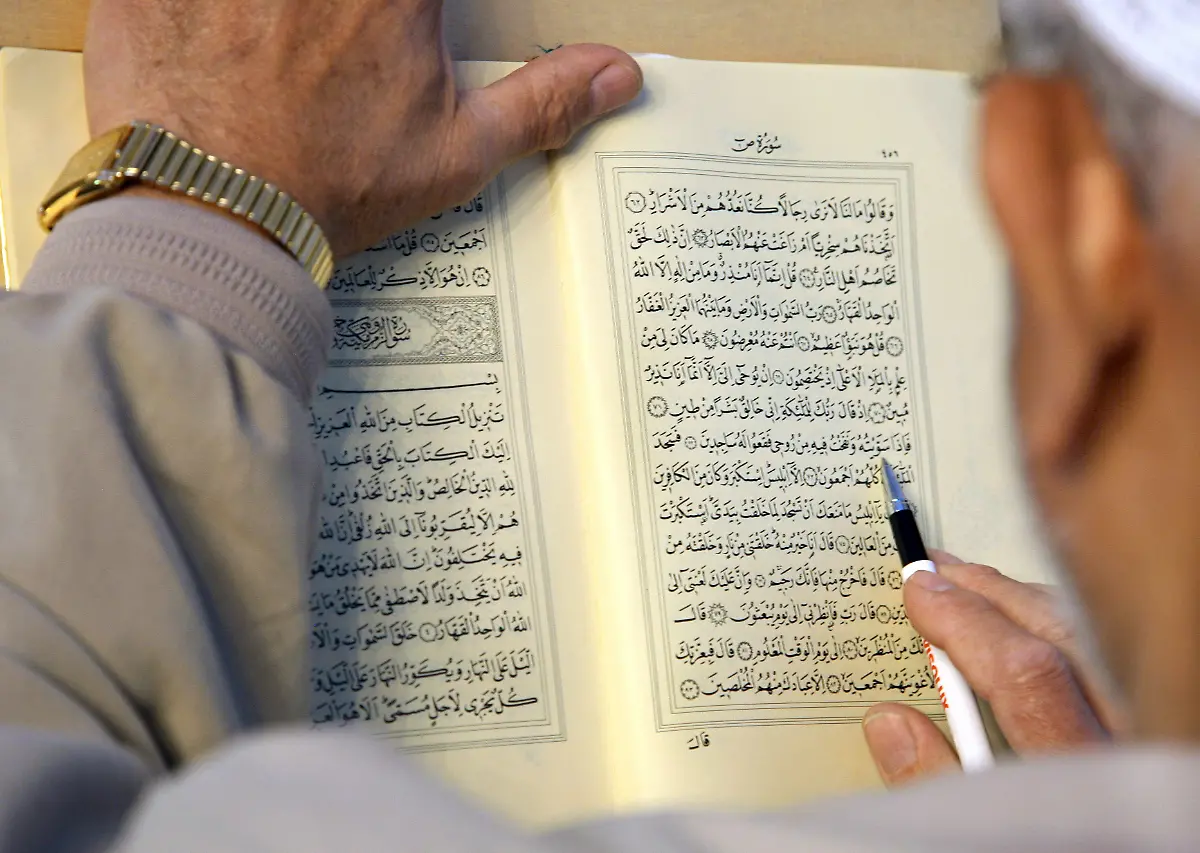 سُورَةُ صۤ ٤٥٦
وَقَالُوا مَا لَنَا لَا نَرٰى رِجَالًا كُنَّا نَعُدُّهُمْ مِنَ الْاَشْرَارِۜ ﴿٦٢﴾
اَتَّخَذْنَاهُمْ سِخْرِيًّا اَمْ زَاغَتْ عَنْهُمُ الْاَبْصَارُ ﴿٦٣﴾ اِنَّ ذٰلِكَ لَحَقٌّ
تَخَاصُمُ اَهْلِ النَّارِ ﴿٦٤﴾ قُلْ اِنَّمَٓا اَنَا۬ مُنْذِرٌ وَمَا مِنْ اِلٰهٍ اِلَّا اللّٰهُ
الْوَاحِدُ الْقَهَّارُ ﴿٦٥﴾ رَبُّ السَّمٰوَاتِ وَالْاَرْضِ وَمَا بَيْنَهُمَا الْعَزِيزُ الْغَفَّارُ
﴿٦٦﴾ قُلْ هُوَ نَبَؤٌا عَظِيمٌ ﴿٦٧﴾ اَنْتُمْ عَنْهُ مُعْرِضُونَ ﴿٦٨﴾ مَا كَانَ لِيَ مِنْ
عِلْمٍ بِالْمَلَاِ الْاَعْلٰٓى اِذْ يَخْتَصِمُونَ ﴿٦٩﴾ اِنْ يُوحٰٓى اِلَيَّ اِلَّٓا اَنَّمَٓا اَنَا۬ نَذِيرٌ
مُبِينٌ ﴿٧٠﴾ اِذْ قَالَ رَبُّكَ لِلْمَلٰٓئِكَةِ اِنِّي خَالِقٌ بَشَرًا مِنْ طِينٍ ﴿٧١﴾
فَاِذَا سَوَّيْتُهُ وَنَفَخْتُ فِيهِ مِنْ رُوحِي فَقَعُوا لَهُ سَاجِدِينَ ﴿٧٢﴾ فَسَجَدَ
كُلُّهُمْ اَجْمَعُونَ ﴿٧٣﴾ اِلَّٓا اِبْلِيسَۜ اِسْتَكْبَرَ وَكَانَ مِنَ الْكَافِرِينَ
يَٓا اِبْلِيسُ مَا مَنَعَكَ اَنْ تَسْجُدَ لِمَا خَلَقْتُ بِيَدَيَّۜ اَسْتَكْبَرْتَ
مِنَ الْعَالِينَ ﴿٧٥﴾ قَالَ اَنَا۬ خَيْرٌ مِنْهُۜ خَلَقْتَنِي مِنْ نَارٍ وَخَلَقْتَهُ مِنْ
قَالَ فَاخْرُجْ مِنْهَا فَاِنَّكَ رَجِيمٌ ﴿٧٧﴾ وَاِنَّ عَلَيْكَ لَعْنَتِٓي اِلٰى
قَالَ رَبِّ فَاَنْظِرْنِٓي اِلٰى يَوْمِ يُبْعَثُونَ ﴿٧٩﴾ قَالَ
مِنَ الْمُنْظَرِينَ ﴿٨٠﴾ اِلٰى يَوْمِ الْوَقْتِ الْمَعْلُومِ ﴿٨١﴾ قَالَ فَبِعِزَّتِكَ
لَاُغْوِيَنَّهُمْ اَجْمَعِينَ ﴿٨٢﴾ اِلَّا عِبَادَكَ مِنْهُمُ الْمُخْلَصِينَ ﴿٨٣﴾
قَالَ
قَالَ
اَجْمَعِينَ ﴿٨٥﴾ قُلْ مَٓا
﴿٨٦﴾ اِنْ هُوَ اِلَّا ذِكْرٌ لِلْعَالَمِينَ
سُورَةُ الزُّمَرِ
بِسْمِ
تَنْزِيلُ الْكِتَابِ مِنَ اللّٰهِ الْعَزِيزِ
اِلَيْكَ الْكِتَابَ بِالْحَقِّ فَاعْبُدِ
لِلّٰهِ الدِّينُ الْخَالِصُۜ وَالَّذِينَ اتَّخَذُوا مِنْ
هُمْ اِلَّا لِيُقَرِّبُونَٓا اِلَى اللّٰهِ زُلْفٰىۜ اِنَّ اللّٰهَ
فِيهِ يَخْتَلِفُونَۜ اِنَّ اللّٰهَ لَا يَهْدِي مَنْ هُوَ
اللّٰهُ اَنْ يَتَّخِذَ وَلَدًا لَاصْطَفٰى مِمَّا يَخْلُقُ مَا
اللّٰهُ الْوَاحِدُ الْقَهَّارُ ﴿٤﴾ خَلَقَ السَّمٰوَاتِ
الَّيْلَ عَلَى النَّهَارِ وَيُكَوِّرُ النَّهَارَ عَلَى الَّيْلِ
كُلٌّ يَجْرِي لِاَجَلٍ مُسَمًّىۜ اَلَا هُوَ